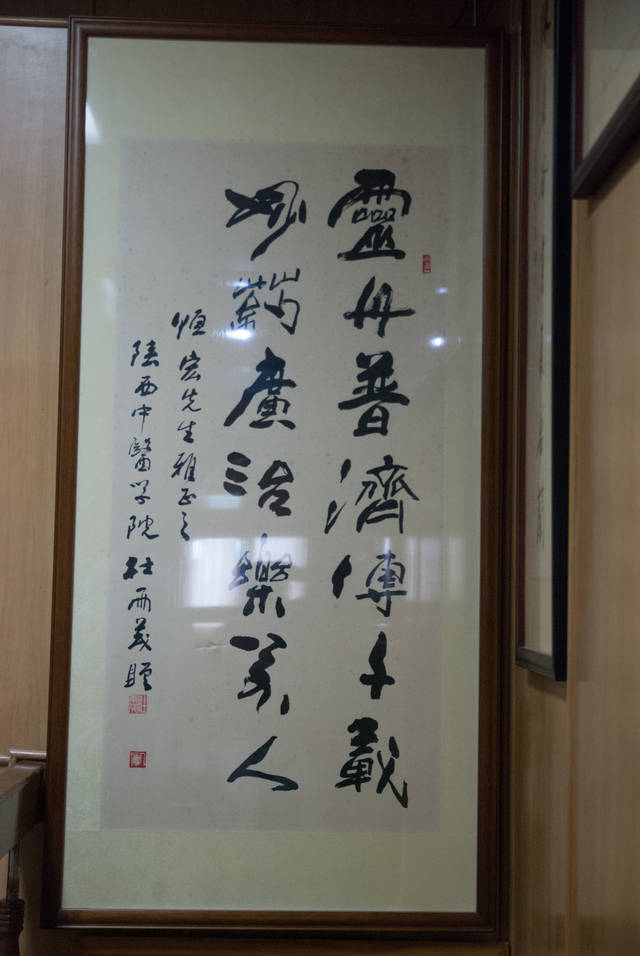 靈丹普濟傳千載
妙葯廣治樂萬人
恒宏先生雅正之
陝西中醫学院 杜雨茂題